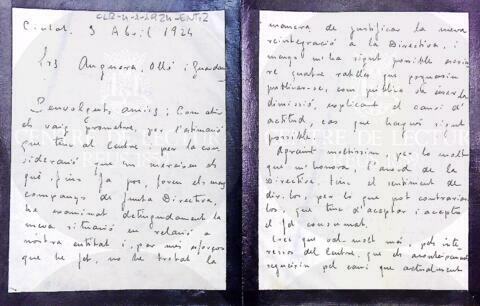 CLR-4-1-1924-ENT-2
Ciutat, 3 Abril 1924
Srs Anguera, Ollé i Guardia
Benvolguts amics: Com ahir
els vaig prometre, per l'estimació
que tinc al Centre i per la con
sideració que em mereixen els
qui, fins fa poc, foren els meus
companys de Junta Directiva,
he examinat detingudament la
meva situació en relació a
nostra entitat i, per més esforços
que he fet, no he trobat la
manera de justificar la meva
reintegració a la Directiva, i
menys m'ha sigut possible escriu
re quatre ratlles que poguessin
publicar-se, com publica va ésser la
dimissió, explicant el canvi d'
actitud, cas que hagués sigut
possible.
Agraint moltíssim, per lo molt
que m'honora, l'acord de la
Directiva, tinc el sentiment de
dir-los, per lo que pot contrariar
los, que tinc d'acceptar i accepto
el fet consumat.
Crec que val molt més, pels inte
ressos del Centre, que els aconteixements
segueixin pel camí que actualment